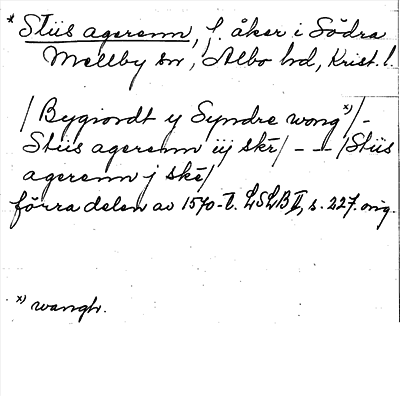 * Stiis agerenn, f. åker i Södra
Mellby sn, Albo hd, Krist. l.
/Bygiordt y Syndre wong x)/-
Stiis agerenn iij skr/ - - /Stiis
agerenn j skr/
förra delen av 1570-t. LSLB II, s. 227. orig.
x) wangh.